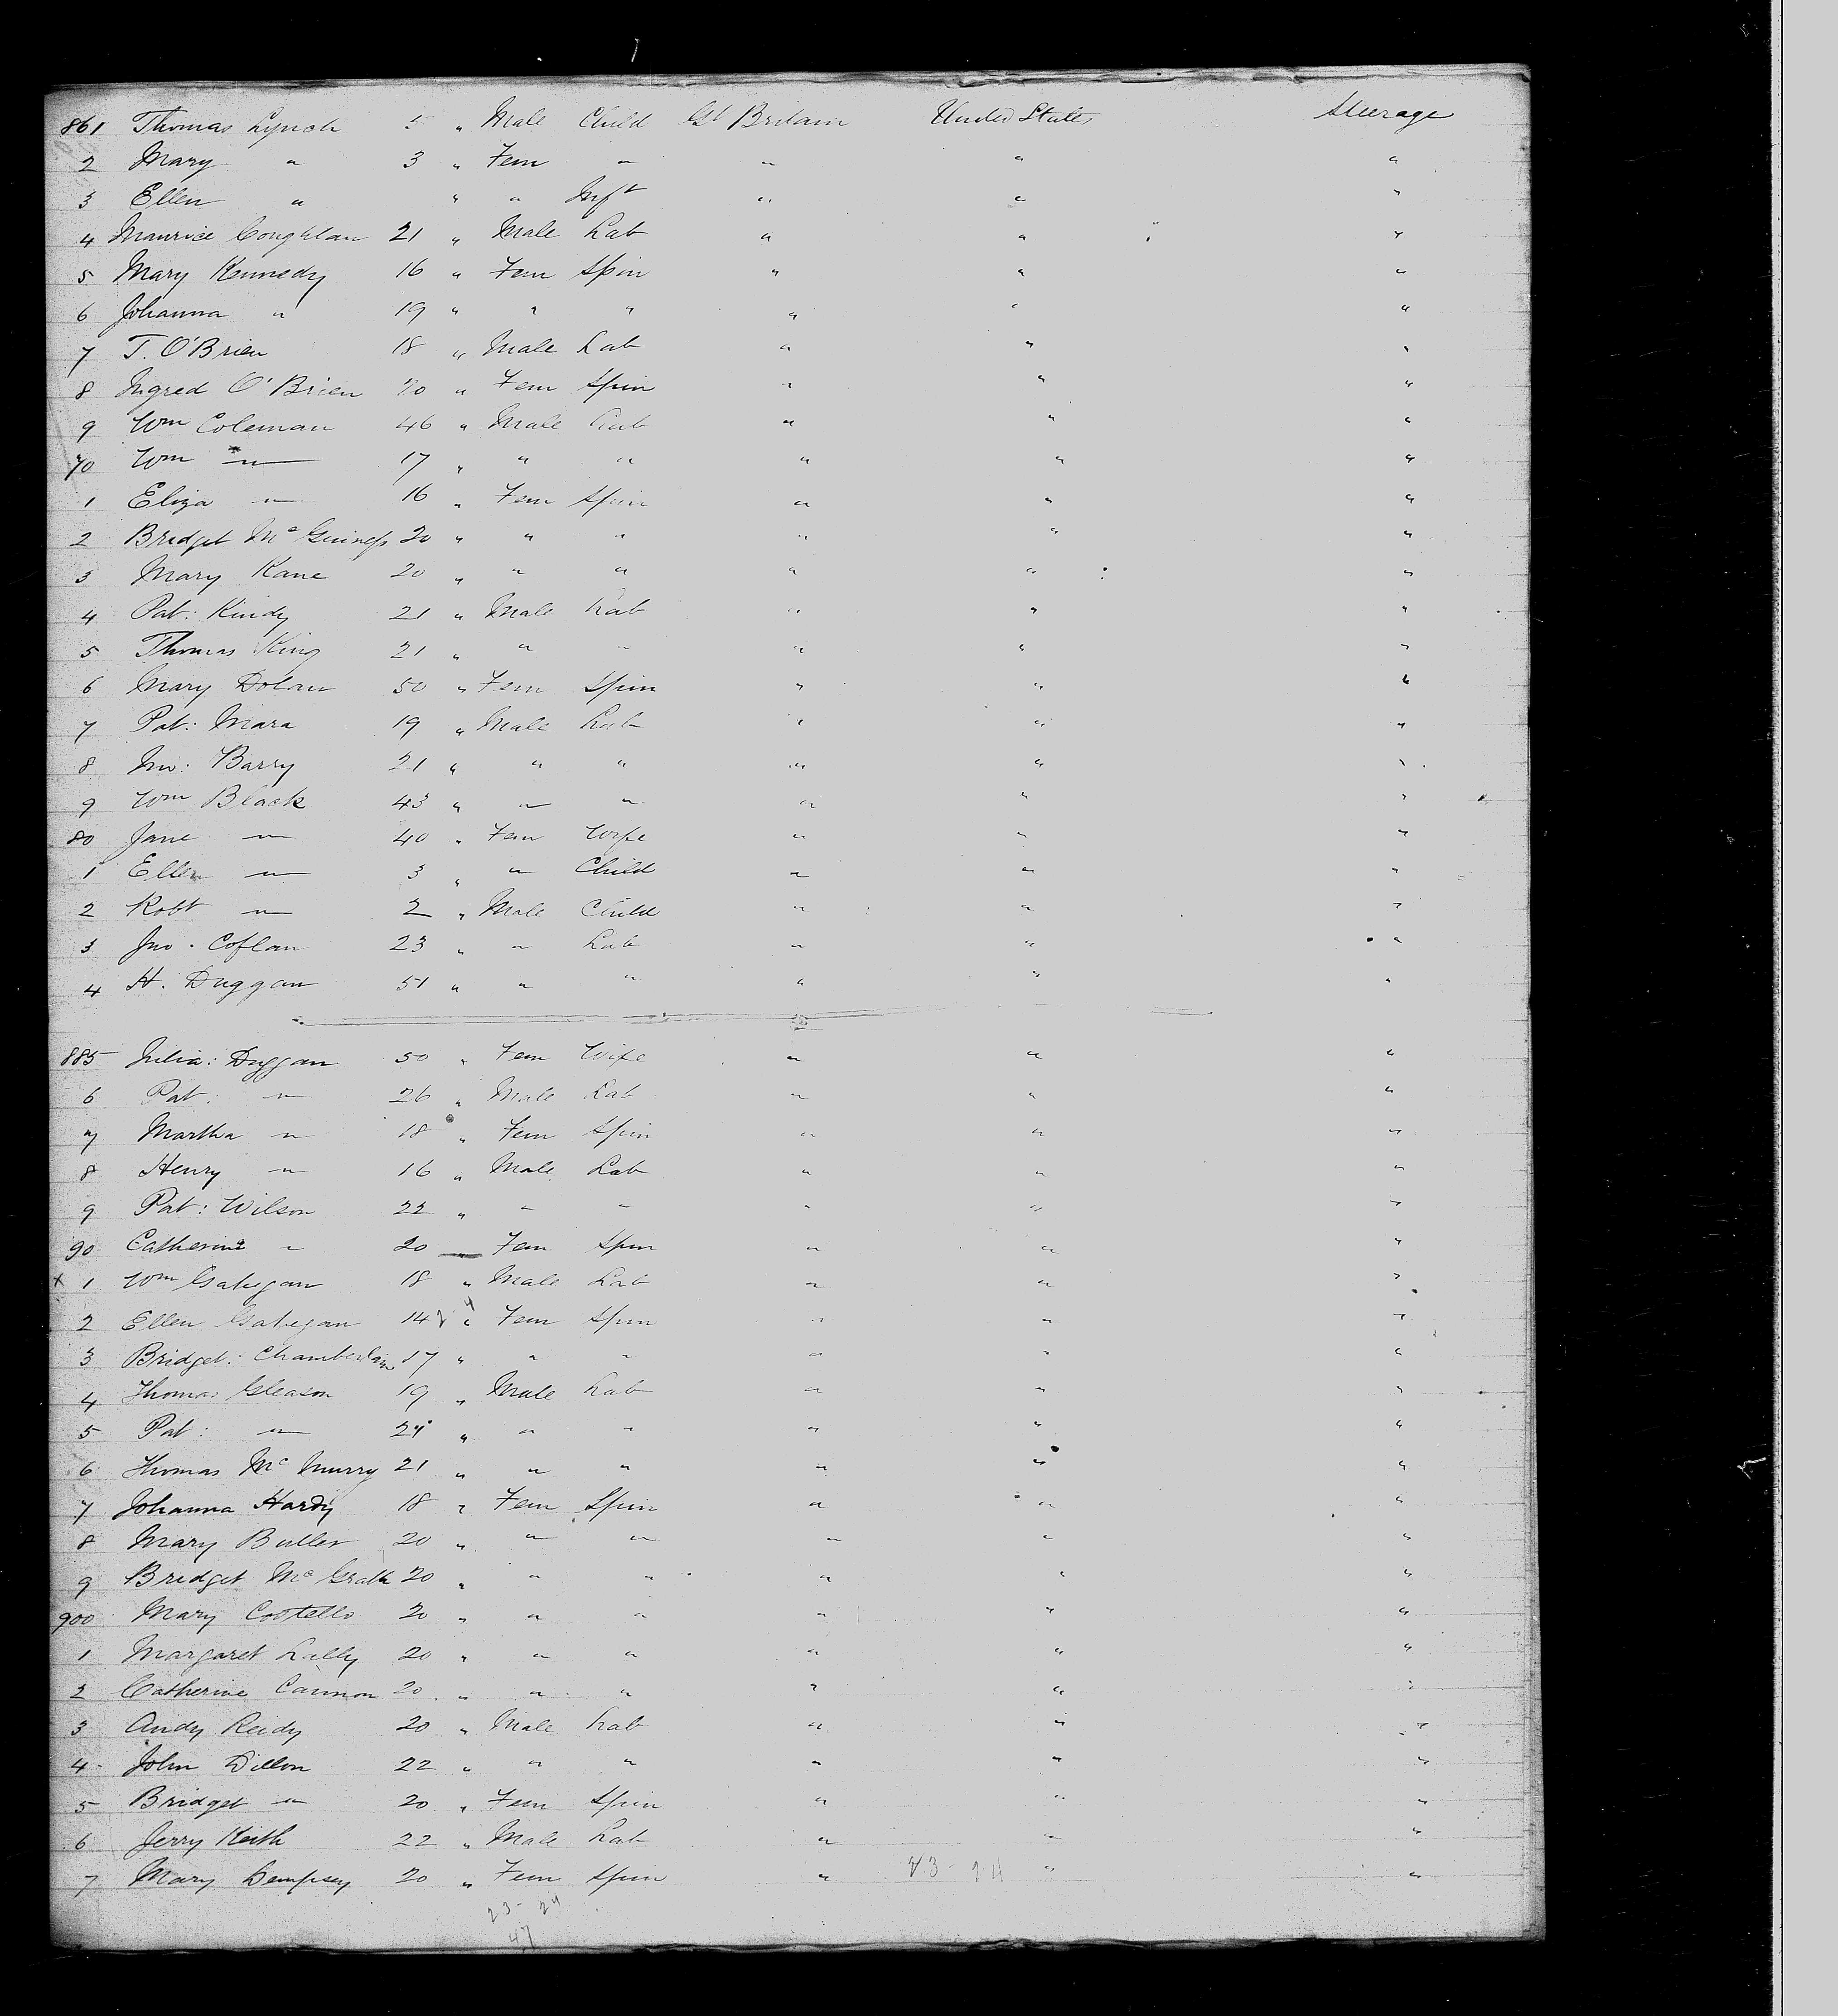 861 Thomas Lynch 5 " Male Child Gt Britain United States Steerage
2 Mary " 3 " Fem " " " "
3 Ellen " " " Inft " " "
4 Maurice Coughlan 21 " Male Lab " " "
5 Mary Kennedy 16 " Fem Spin " " "
6 Johanna " 19 " " " " " "
7 T. O'Brien 18 " Male Lab " " "
8 O'Brien 20 " Fem Spin " " "
9 Wm Coleman 46 " Male Lab " " "
70 Wm " 17 " " " " " "
1 Eliza " 16 " Fem Spin " " "
2 Bridget Mc Guiness 20 " " " " " "
3 Mary Kane 20 " " " " " "
4 Pat: Kindy 21 " Male Lab " " "
5 Thomas King 21 " " " " " "
6 Mary Dolan 50 " Fem Spin " " "
7 Pat: Mara 19 " Male Lab " " "
8 Jno: Barry 21 " " " " " "
9 Wm Black 43 " " " " " "
80 Jane " 40 " Fem Wife " " "
1 Ellen " 3 " " Child " " "
2 Robt " 2 " Male Child " " "
3 Jno. Coflan 23 " " Lab " " "
4 H. Duggan 51 " " " " " "
885 Julia: Duggan 50 " Fem Wife " " "
6 Pat: " 26 " Male Lab " " "
7 Martha " 18 " Fem Spin " " "
8 Henry " 16 " Male Lab " " "
9 Pat: Wilson 22 " " " " " "
90 Catherine " 20 " Fem Spin " " "
x 1 Wm Gahegan 18 " Male Lab " " "
2 Ellen Gahegan 14 " Fem Spin " " "
3 Bridget: Chamberlain 17 " " " " " "
4 Thomas Gleason 19 " Male Lab " " "
5 Pat: " 24 " " " " " "
6 Thomas Mc Murry 21 " " " " " "
7 Johanna Hardy 18 " Fem Spin " " "
8 Mary Butler 20 " " " " " "
9 Bridget Mc Grath 20 " " " " " "
900 Mary Costello 20 " " " " " "
1 Margaret Lally 20 " " " " " "
2 Catherine Cannon 20 " " " " " "
3 Andy Reidy 20 " Male Lab " " "
4 John Dillon 22 " " " " " "
5 Bridget " 20 " Fem Spin " " "
6 Jerry Keith 22 " Male Lab " " "
7 Mary Dempsey 20 " Fem Spin " 23-24 " "
23-24
47